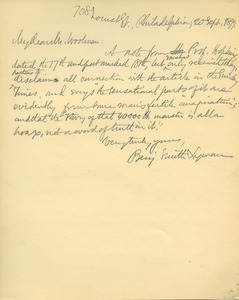 708 Locust St., Philadelphia, 20 Sept. 1897.
My dear Mr. Woolman
A note from Prof. Heilprin
dated the 17th and postmarked 18th, but only received
disclaims all connection with the article in the
Times, and says the sensational parts of it are
evidently from some man's fertile imagination,
and that the story of that 40000 ft. monster is all a
hoax, not a word of truth in it.
Very truly yours,
Benj. Smith Lyman